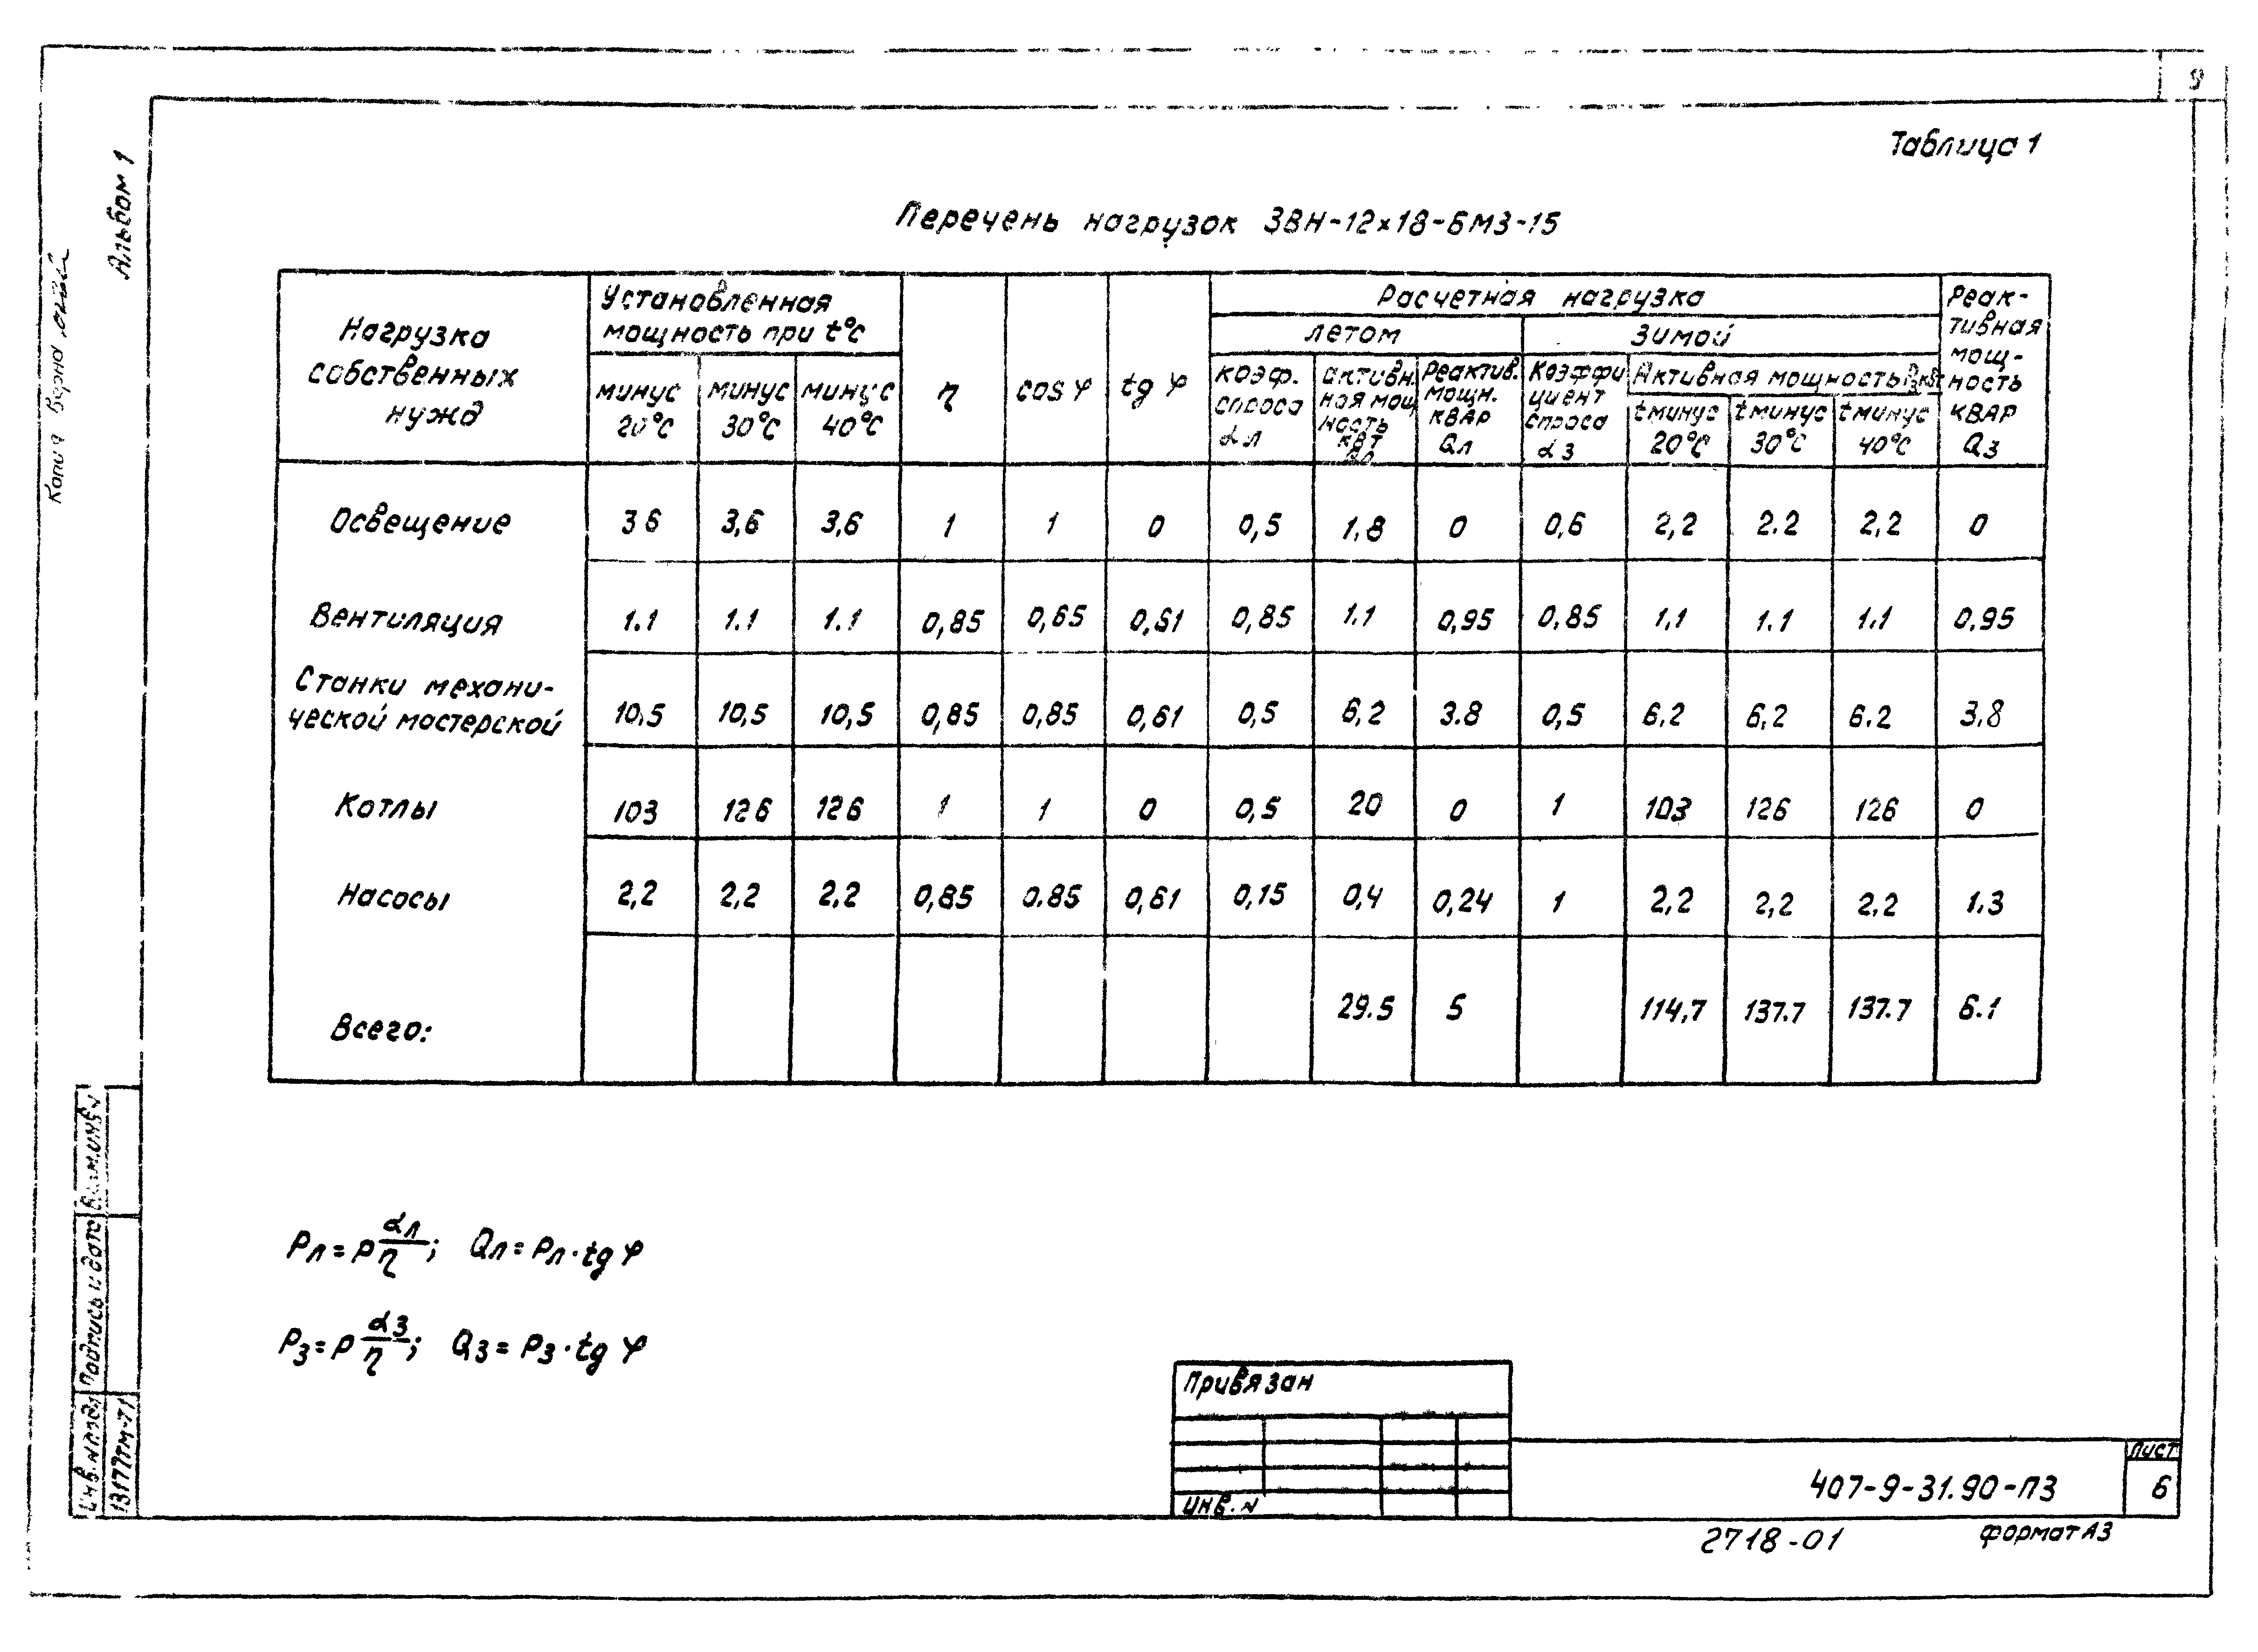 9
Таблица 1
Альбом 1
Копия верна
Перечень нагрузок ЗВН-12×18-БМЗ-15
Нагрузка собственных нужд
Установленная мощность при t°С
минус 20°С
минус 30°С
минус 40°С
η
cos φ
tg φ
Расчетная нагрузка
летом
зимой
коэф. спроса αл
активн. ная мощ ность кВт
Реактив. мощн. кВАР Qл
Коэффи циент спроса αз
Активная мощность Рз кВт
t минус 20°С
t минус 30°С
t минус 40°С
Реак- тивная мощ- ность кВАР Qз
Освещение 3 6 3,6 3,6 1 1 0 0,5 1,8 0 0,6 2,2 2.2 2,2 0
Вентиляция 1.1 1.1 1.1 0,85 0,65 0,61 0,85 1.1 0,95 0,85 1,1 1.1 1.1 0,95
Станки механи- ческой мастерской 10,5 10,5 10,5 0,85 0,85 0,61 0,5 6,2 3.8 0,5 6,2 6,2 6.2 3,8
Котлы 103 126 126 1 1 0 0,5 20 0 1 103 126 126 0
Насосы 2,2 2,2 2,2 0,85 0.85 0,61 0,15 0,4 0,24 1 2,2 2,2 2.2 1.3
Всего: 29.5 5 114,7 137.7 137.7 6.1
Рл = Р αл/η; Qл = Рл · tg φ
Рз = Р αз/η; Qз = Рз · tg φ
Взам.инв.№
Подпись и дата
Инв.№подл
13177тм-т1
Привязан
Инв. №
407-9-31.90-ПЗ
Лист
6
2718-01
формат А3